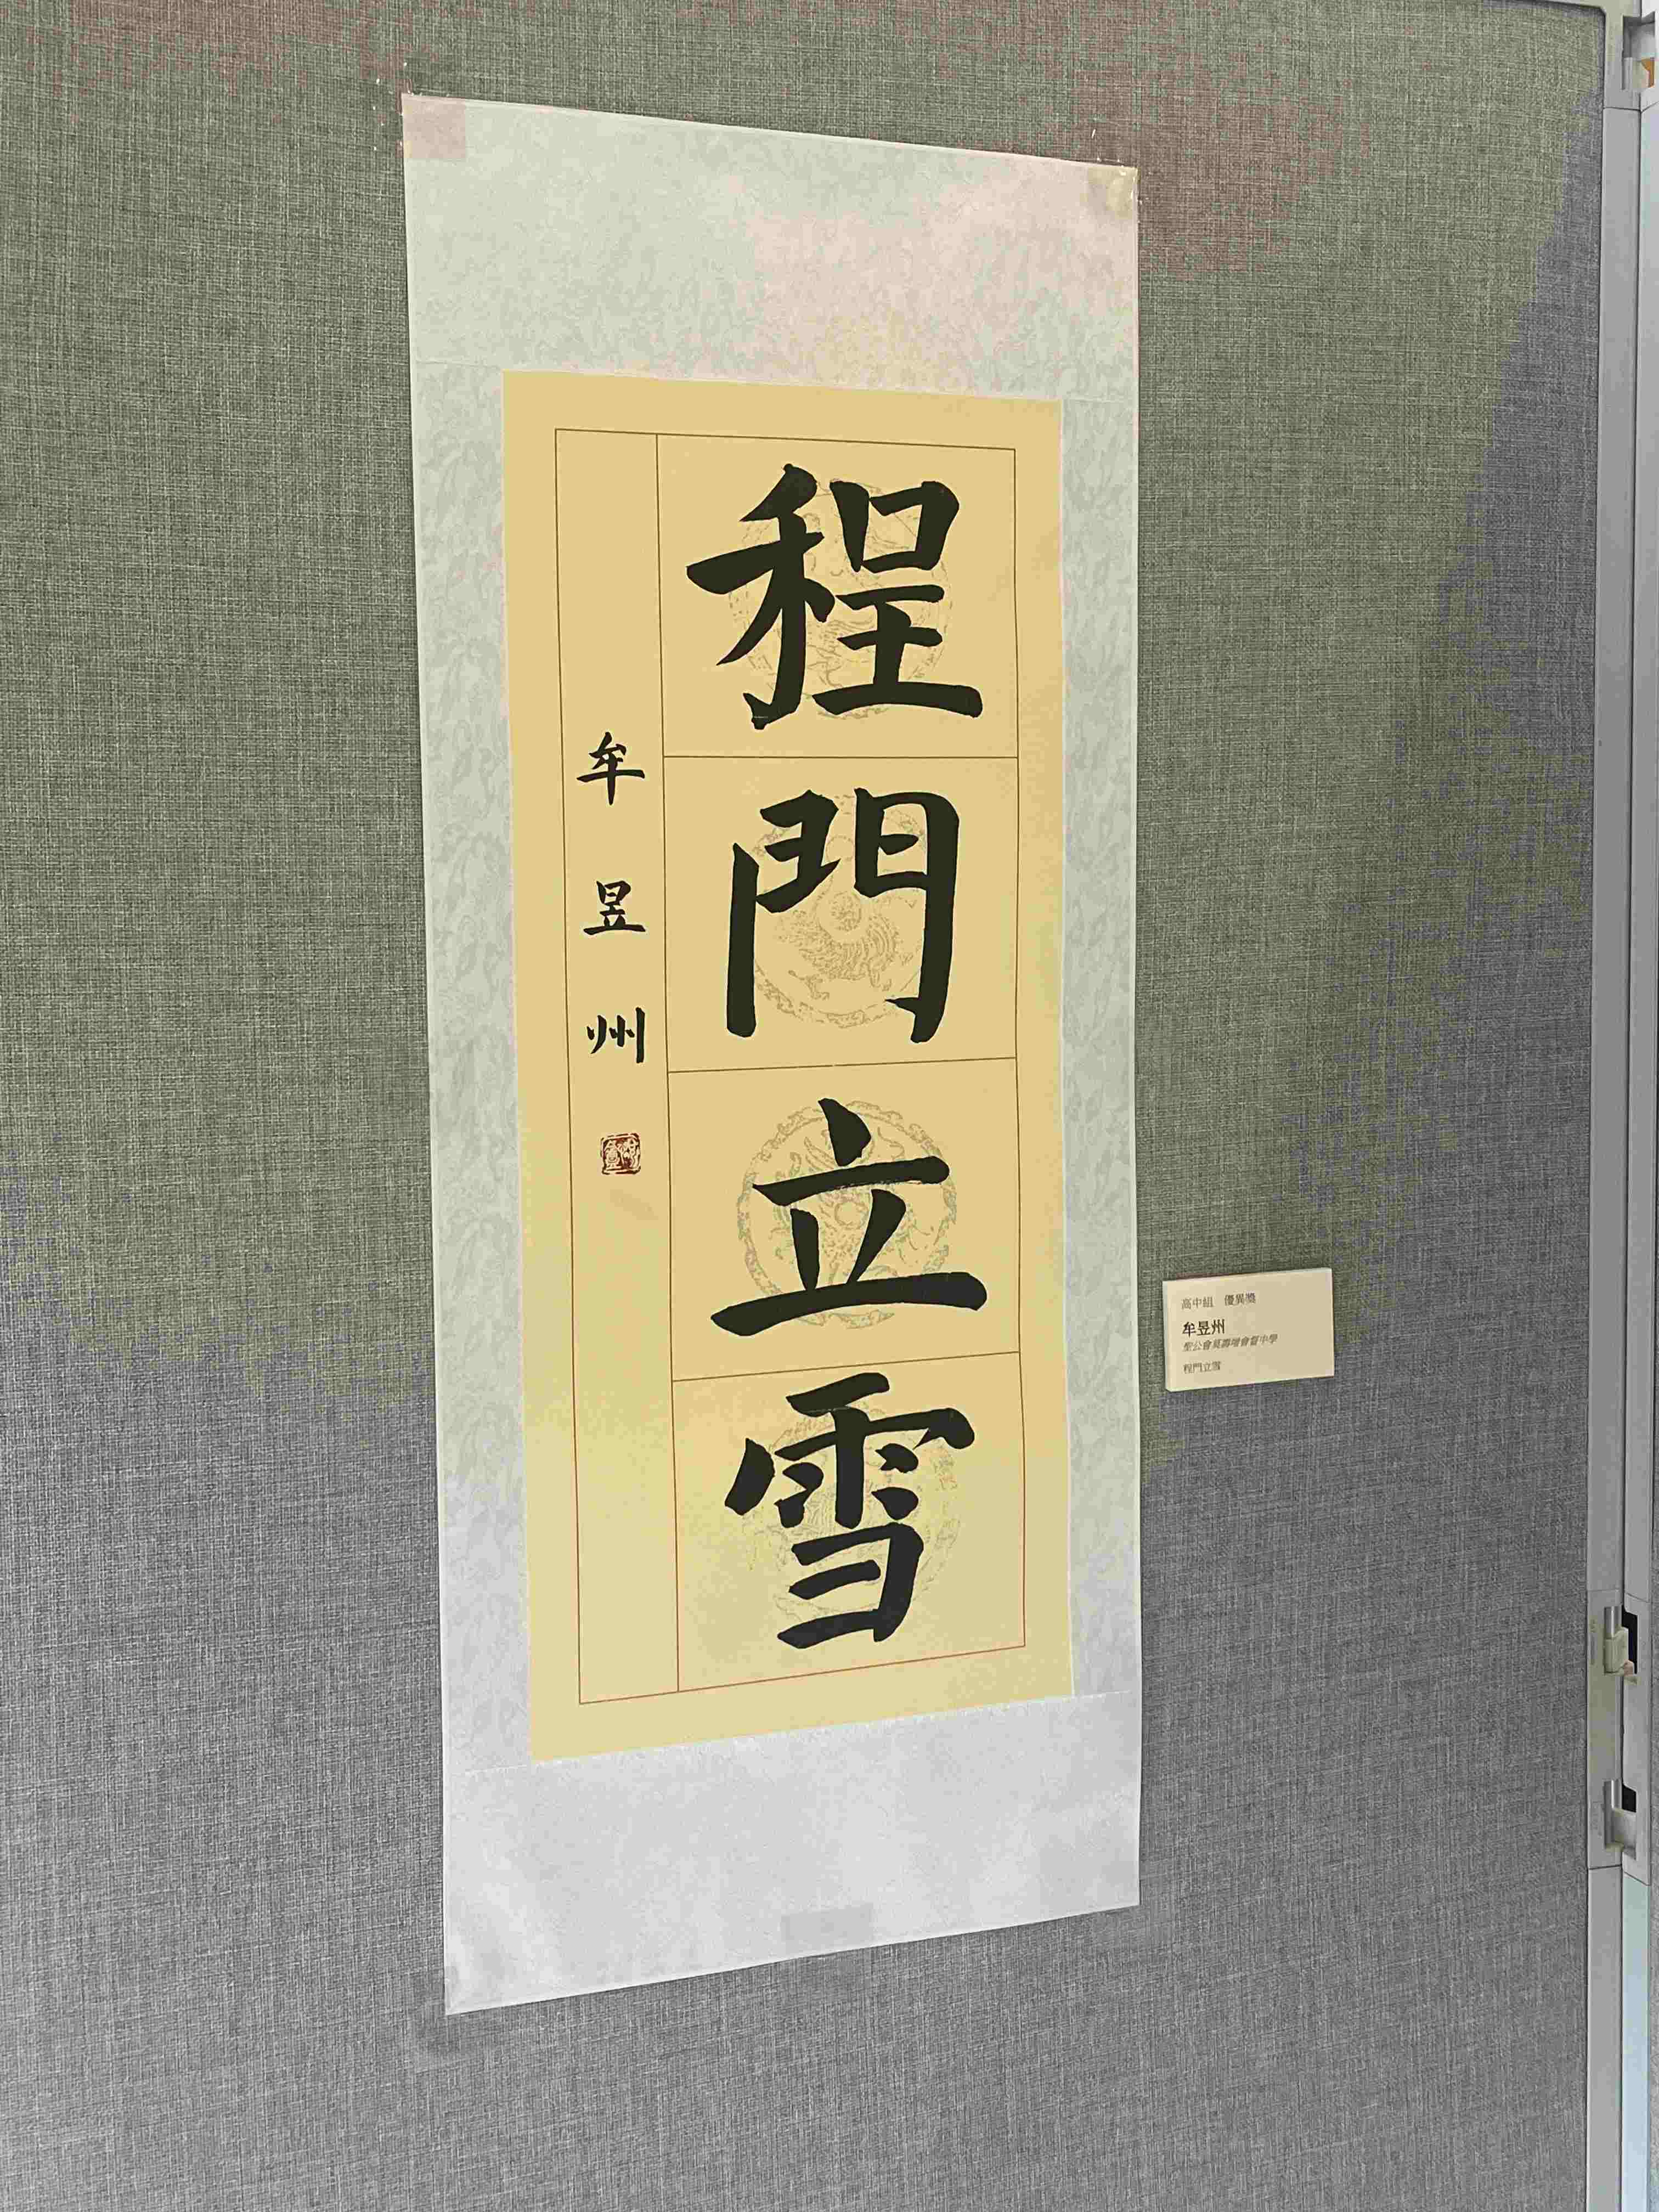 程門立雪
牟昱州
高中組 優異獎
牟昱州
聖公會莫壽增會督中學
程門立雪